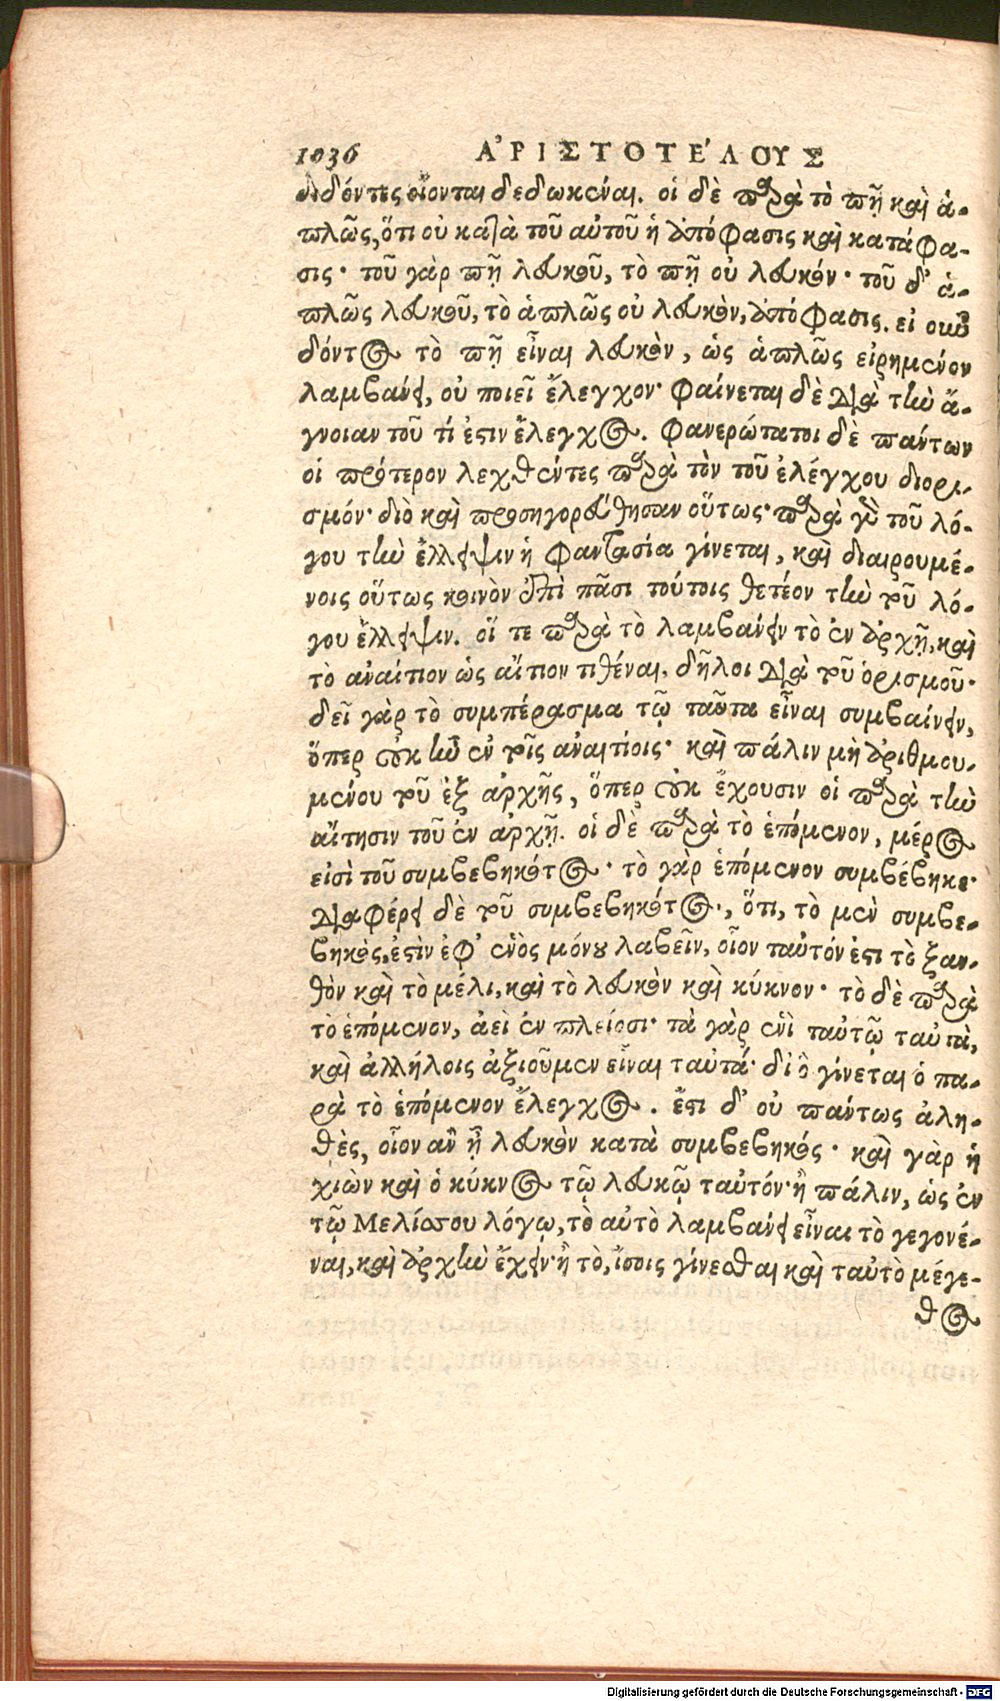 1036 ἈΡΙΣΤΟΤΕ´ΛΟΥΣ
διδόντες οἴονται δεδωκέναι. οἱ δὲ παρὰ τὸ πῇ καὶ ἁ-
πλῶς, ὅτι οὐ κατὰ τοῦ αὐτοῦ ἡ ἀπόφασις καὶ κατάφα-
σις· τοῦ γὰρ πῇ λευκοῦ, τὸ πῇ οὐ λευκόν· τοῦ δ' ἁ-
πλῶς λευκοῦ, τὸ ἁπλῶς οὐ λευκὸν, ἀπόφασις. εἰ οὖν
δόντος τὸ πῇ εἶναι λευκὸν, ὡς ἁπλῶς εἰρημένον
λαμβάνει, οὐ ποιεῖ ἔλεγχον· φαίνεται δὲ διὰ τὴν ἄ-
γνοιαν τοῦ τί ἐστιν ἔλεγχος. φανερώτατοι δὲ πάντων
οἱ πρότερον λεχθέντες παρὰ τὸν τοῦ ἐλέγχου διορι-
σμόν· διὸ καὶ προσηγορεύθησαν οὕτως· παρὰ γὰρ τοῦ λό-
γου τὴν ἔλλειψιν ἡ φαντασία γίνεται, καὶ διαιρουμέ-
νοις οὕτως κοινὸν ἐπὶ πᾶσι τούτοις θετέον τὴν τοῦ λό-
γου ἔλλειψιν. οἵ τε παρὰ τὸ λαμβάνειν τὸ ἐν ἀρχῇ, καὶ
τὸ ἀναίτιον ὡς αἴτιον τιθέναι, δῆλοι διὰ τοῦ ὁρισμοῦ·
δεῖ γὰρ τὸ συμπέρασμα τῷ ταῦτα εἶναι συμβαίνειν,
ὅπερ οὐκ ἦν ἐν τοῖς ἀναιτίοις· καὶ πάλιν μὴ ἀριθμου-
μένου τοῦ ἐξ ἀρχῆς, ὅπερ οὐκ ἔχουσιν οἱ παρὰ τὴν
αἴτησιν τοῦ ἐν ἀρχῇ. οἱ δὲ παρὰ τὸ ἑπόμενον, μέρος
εἰσὶ τοῦ συμβεβηκότος· τὸ γὰρ ἑπόμενον συμβέβηκε·
διαφέρει δὲ τοῦ συμβεβηκότος, ὅτι, τὸ μὲν συμβε-
βηκὸς, ἐστὶν ἐφ' ἑνὸς μόνου λαβεῖν, οἷον ταὐτόν ἐστι τὸ ξαν-
θὸν καὶ τὸ μέλι, καὶ τὸ λευκὸν καὶ κύκνον· τὸ δὲ παρὰ
τὸ ἑπόμενον, ἀεὶ ἐν πλείοσι· τὰ γὰρ ἑνὶ ταὐτῷ ταὐτὰ,
καὶ ἀλλήλοις ἀξιοῦμεν εἶναι ταὐτά· δι ὃ γίνεται ὁ πα-
ρὰ τὸ ἑπόμενον ἔλεγχος. ἔστι δ' οὐ πάντως ἀλη-
θὲς, οἷον ἂν ᾖ λευκὸν κατὰ συμβεβηκός· καὶ γὰρ ἡ
χιὼν καὶ ὁ κύκνος τῷ λευκῷ ταὐτόν· ἢ πάλιν, ὡς ἐν
τῷ Μελίσσου λόγῳ, τὸ αὐτὸ λαμβάνει εἶναι τὸ γεγονέ-
ναι, καὶ ἀρχὴν ἔχειν· ἢ τὸ, ἴσοις γίνεσθαι καὶ ταὐτὸ μέγε-
θος
Digitalisierung gefördert durch die Deutsche Forschungsgemeinschaft - DFG